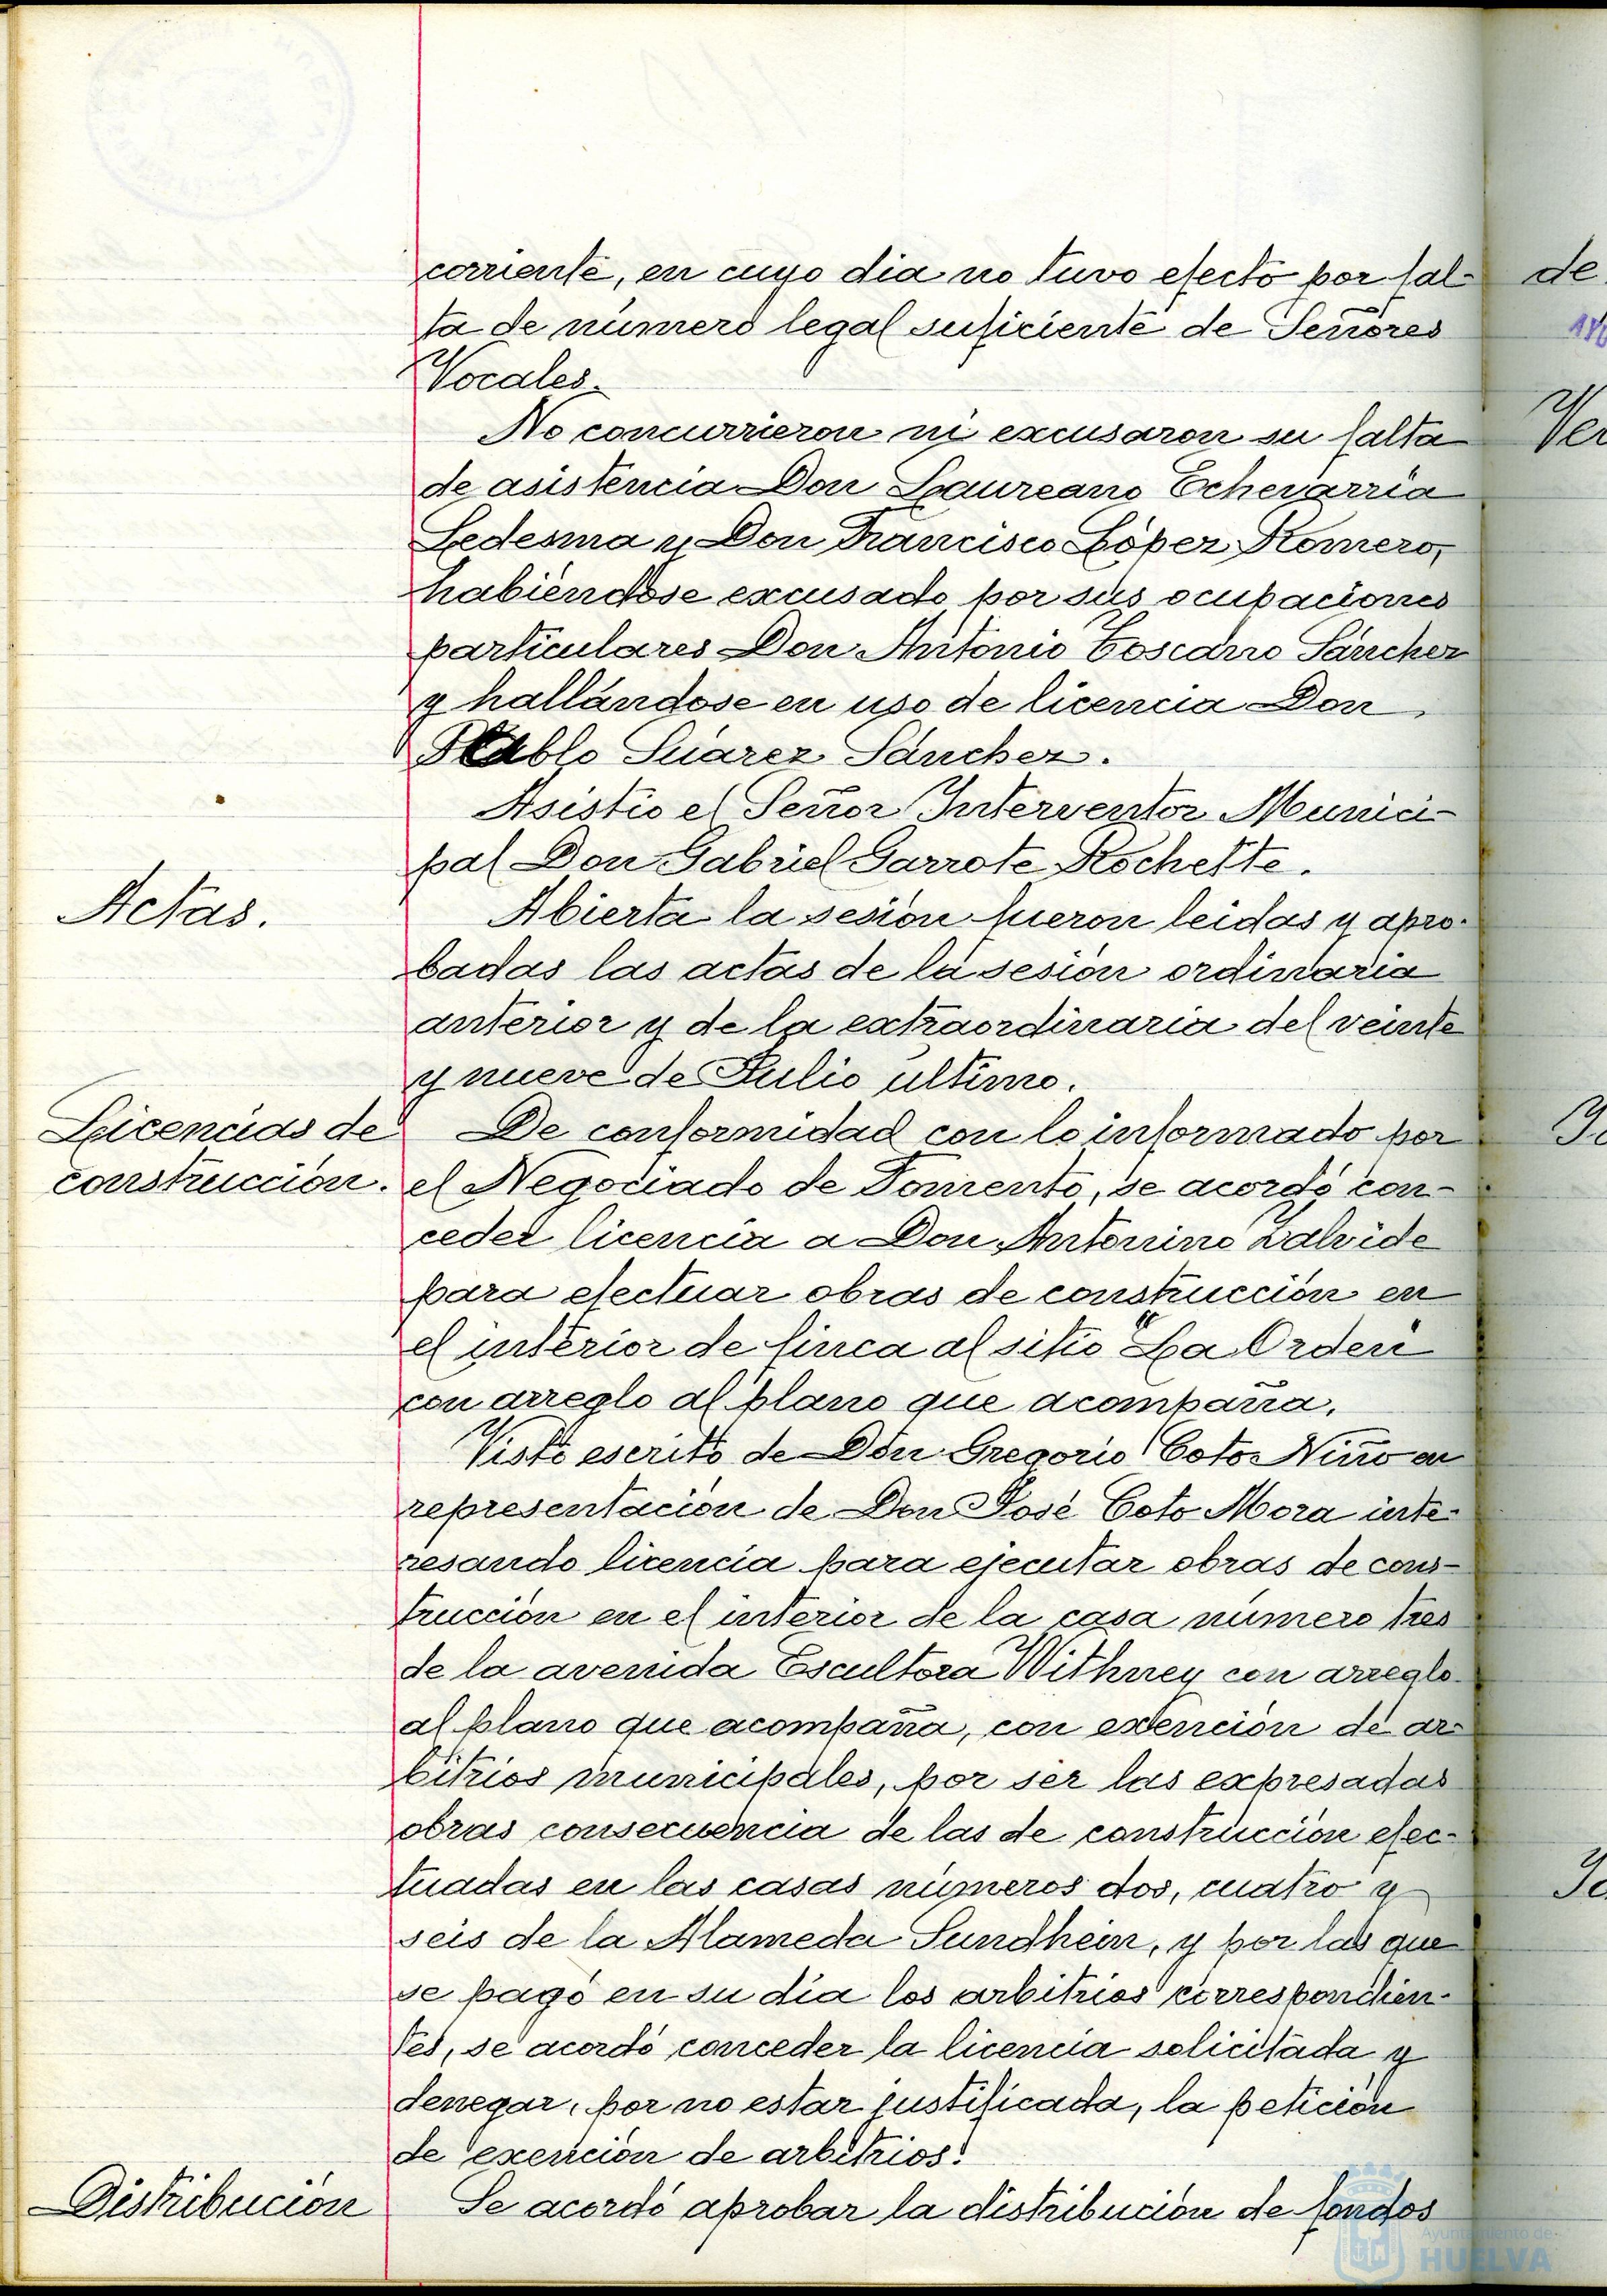 corriente, en cuyo dia no tuvo efecto por fal-
ta de número legal suficiente de Señores
Vocales.
No concurrieron ni excusaron su falta
de asistencia Don Laureano Echevarría
Ledesma y Don Francisco López Romero,
habiéndose excusado por sus ocupaciones
particulares Don Antonio Toscano Sánchez
y hallándose en uso de licencia Don
Pablo Suárez Sánchez.
Asistió el Señor Interventor Munici-
pal Don Gabriel Garrote Rochette.
Actas.
Abierta la sesión fueron leidas y apro-
badas las actas de la sesión ordinaria
anterior y de la extraordinaria del veinte
y nueve de Julio último.
Licencias de
construcción.
De conformidad con lo informado por
el Negociado de Fomento, se acordó con-
ceder licencia a Don Antonino Zalvide
para efectuar obras de construcción en
el interior de finca al sitio "La Orden"
con arreglo al plano que acompaña.
Visto escrito de Don Gregorio Coto Niño en
representación de Don José Coto Mora inte-
resando licencia para ejecutar obras de cons-
trucción en el interior de la casa número tres
de la avenida Escultora Withney con arreglo
al plano que acompaña, con extención de ar-
bitrios municipales, por ser las expresadas
obras consecuencia de las de construcción efec-
tuadas en las casas números dos, cuatro y
seis de la Alameda Sundhein, y por las que
se pagó en su día los arbitrios correspondien-
tes, se acordó conceder la licencia solicitada y
denegar, por no estar justificada, la petición
de exención de arbitrios.
Distribución
Se acordó aprobar la distribución de fondos
de
Ver
Ayuntamiento de
HUELVA